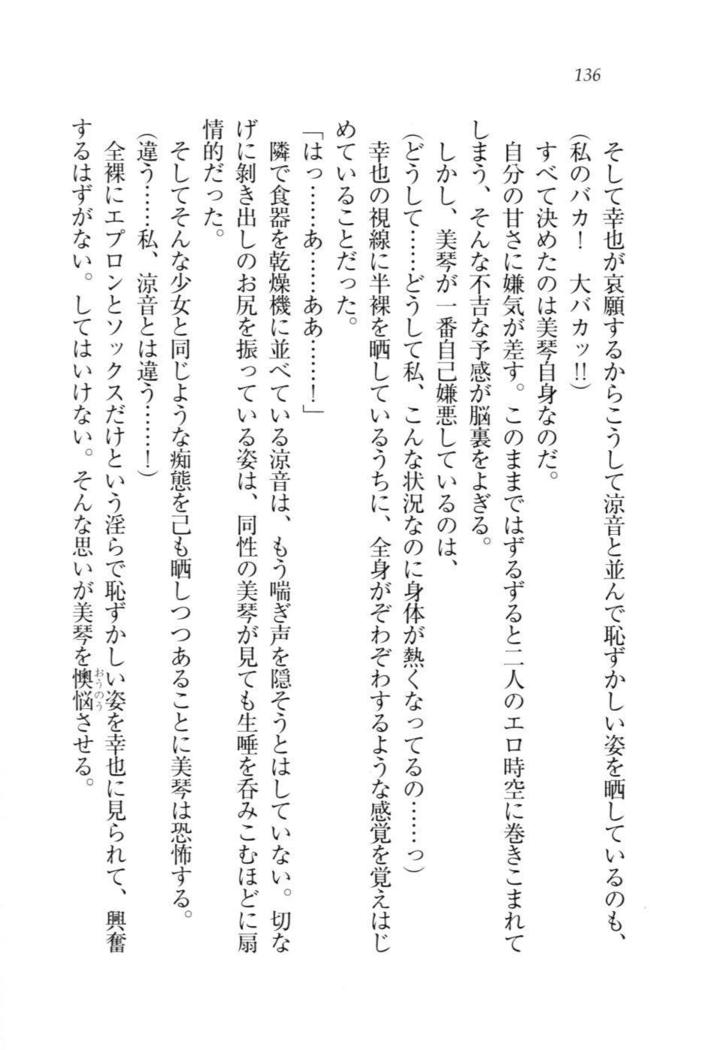 136
そして幸也が哀願するからこうして涼音と並んで恥ずかしい姿を晒しているのも、
(私のバカ！　大バカッ!!)
すべて決めたのは美琴自身なのだ。
自分の甘さに嫌気が差す。このままではずるずると二人のエロ時空に巻きこまれて
しまう、そんな不吉な予感が脳裏をよぎる。
しかし、美琴が一番自己嫌悪しているのは、
(どうして……どうして私、こんな状況なのに身体が熱くなってるの……っ)
幸也の視線に半裸を晒しているうちに、全身がぞわぞわするような感覚を覚えはじ
めていることだった。
「はっ……あ……ああ……！」
隣で食器を乾燥機に並べている涼音は、もう喘ぎ声を隠そうとはしていない。切な
げに剝き出しのお尻を振っている姿は、同性の美琴が見ても生唾を呑みこむほどに扇
情的だった。
そしてそんな少女と同じような痴態を己も晒しつつあることに美琴は恐怖する。
(違う……私、涼音とは違う……！)
全裸にエプロンとソックスだけという淫らで恥ずかしい姿を幸也に見られて、興奮
するはずがない。してはいけない。そんな思いが美琴を懊悩おうのうさせる。